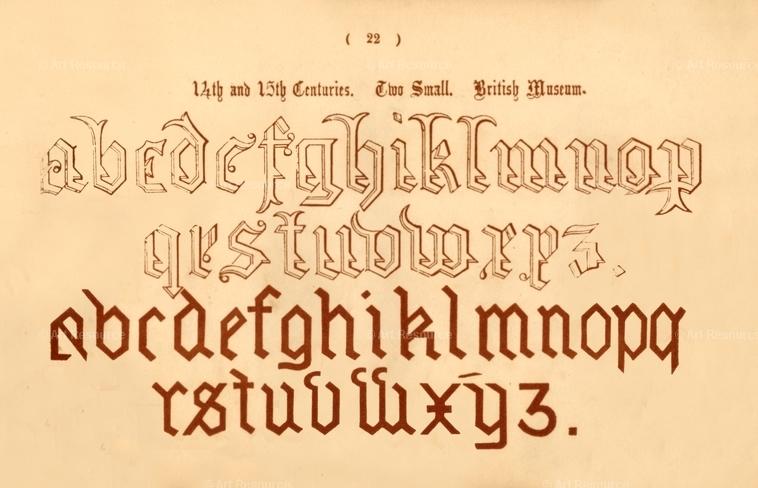 ( 22 )
14th and 15th Centuries. Two Small. British Museum.
abcdefghiklmnop
qrstuvwxyz.
abcdefghiklmnopq
rstuvwxyz.
© Art Resource